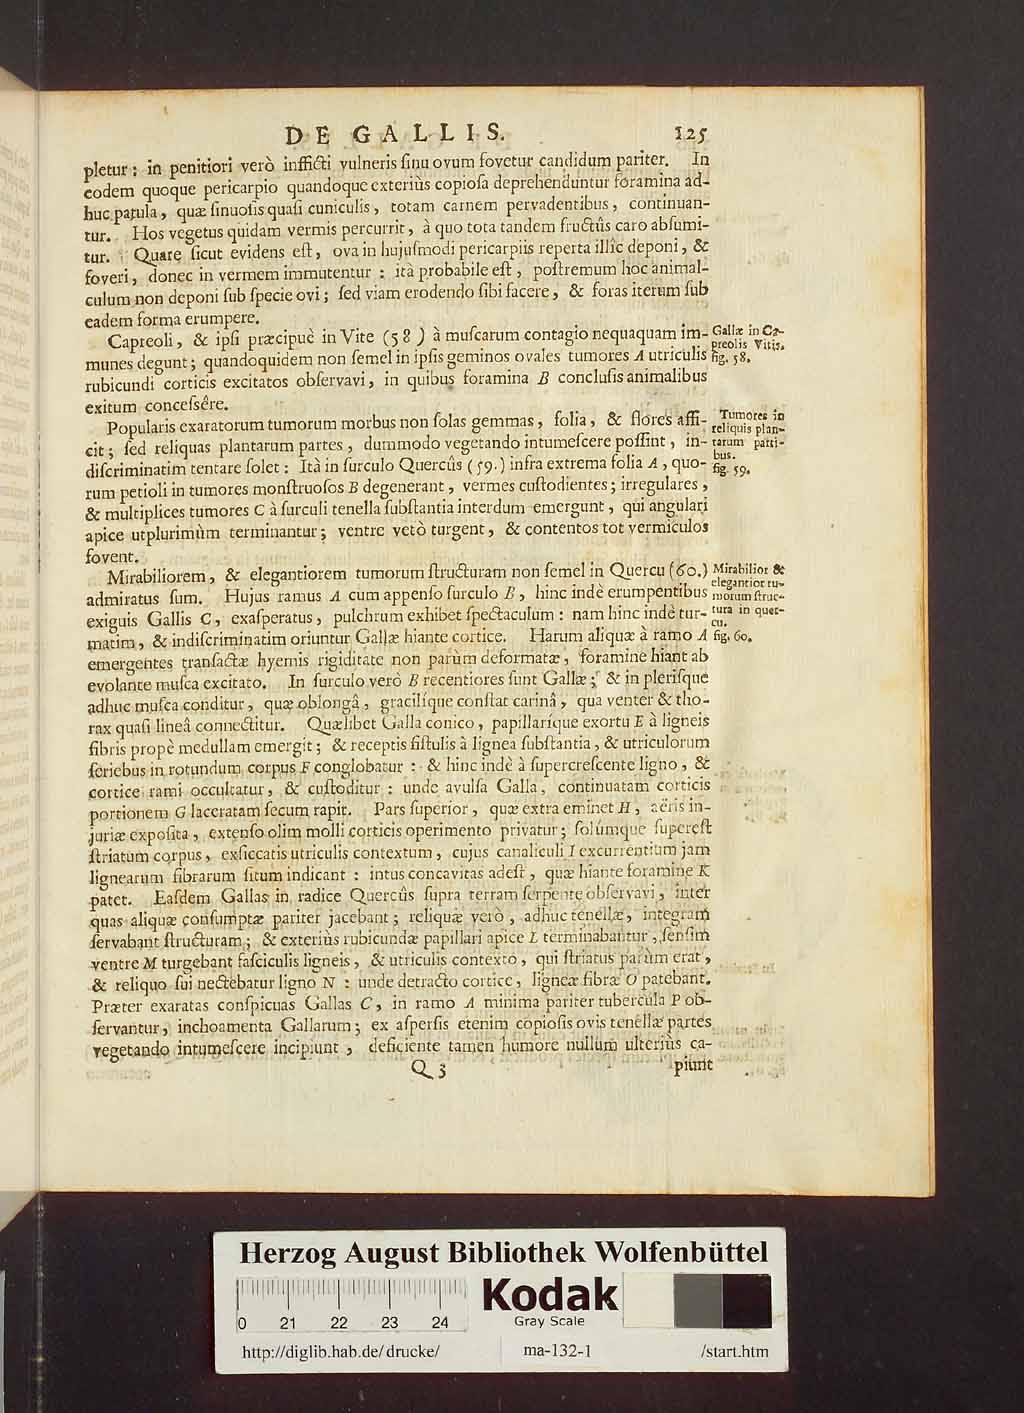 DE GALLIS. 125
pletur; in penitiori verò inflicti vulneris ſinu ovum fovetur candidum pariter. In
eodem quoque pericarpio quandoque exteriùs copioſa deprehenduntur foramina ad-
huc patula, quæ ſinuoſis quaſi cuniculis, totam carnem pervadentibus, continuan-
tur. Hos vegetus quidam vermis percurrit, à quo tota tandem fructûs caro abſumi-
tur. Quare ſicut evidens eſt, ova in hujuſmodi pericarpiis reperta illîc deponi, &
foveri, donec in vermem immutentur: ità probabile eſt, poſtremum hoc animal-
culum non deponi ſub ſpecie ovi; ſed viam erodendo ſibi facere, & foras iterum ſub
eadem forma erumpere.
Capreoli, & ipſi præcipuè in Vite (58) à muſcarum contagio nequaquam im-
munes degunt; quandoquidem non ſemel in ipſis geminos ovales tumores A utriculis
rubicundi corticis excitatos obſervavi, in quibus foramina B concluſis animalibus
exitum conceſsêre.
Gallæ in Ca-
preolis Vitis.
fig. 58.
Popularis exaratorum tumorum morbus non ſolas gemmas, folia, & flores affi-
cit; ſed reliquas plantarum partes, dummodo vegetando intumeſcere poſſint, in-
diſcriminatim tentare ſolet: Ità in ſurculo Quercûs (59.) infra extrema folia A, quo-
rum petioli in tumores monſtruoſos B degenerant, vermes cuſtodientes; irregulares,
& multiplices tumores C à ſurculi tenella ſubſtantia interdum emergunt, qui angulari
apice utplurimùm terminantur; ventre verò turgent, & contentos tot vermiculos
fovent.
Tumores in
reliquis plan-
tarum parti-
bus.
fig. 59.
Mirabiliorem, & elegantiorem tumorum ſtructuram non ſemel in Quercu (60.)
admiratus ſum. Hujus ramus A cum appenſo ſurculo B, hinc indè erumpentibus
exiguis Gallis C, exaſperatus, pulchrum exhibet ſpectaculum: nam hinc indè tur-
matim, & indiſcriminatim oriuntur Gallæ hiante cortice. Harum aliquæ à ramo A
emergentes tranſactæ hyemis rigiditate non parùm deformatæ, foramine hiant ab
evolante muſca excitato. In ſurculo verò B recentiores ſunt Gallæ; & in pleriſque
adhuc muſca conditur, quæ oblongâ, gracilíque conſtat carinâ, qua venter & tho-
rax quaſi lineâ connectitur. Quælibet Galla conico, papillarique exortu E à ligneis
fibris propè medullam emergit; & receptis fiſtulis à lignea ſubſtantia, & utriculorum
ſeriebus in rotundum corpus F conglobatur: & hinc indè à ſupercreſcente ligno, &
cortice rami occultatur, & cuſtoditur: unde avulſa Galla, continuatam corticis
portionem G laceratam ſecum rapit. Pars ſuperior, quæ extra eminet H, aëris in-
juriæ expoſita, extenſo olim molli corticis operimento privatur; ſolúmque ſupereſt
ſtriatum corpus, exſiccatis utriculis contextum, cujus canaliculi I excurrentium jam
lignearum fibrarum ſitum indicant: intus concavitas adeſt, quæ hiante foramine K
patet. Eaſdem Gallas in radice Quercûs ſupra terram ſerpente obſervavi, inter
quas aliquæ conſumptæ pariter jacebant; reliquæ verò, adhuc tenellæ, integram
ſervabant ſtructuram; & exteriùs rubicundæ papillari apice L terminabantur, ſenſim
ventre M turgebant faſciculis ligneis, & utriculis contexto, qui ſtriatus parùm erat,
& reliquo ſui nectebatur ligno N: unde detracto cortice, ligneæ fibræ O patebant.
Præter exaratas conſpicuas Gallas C, in ramo A minima pariter tubercula P ob-
ſervantur, inchoamenta Gallarum; ex aſperſis etenim copioſis ovis tenellæ partes
vegetando intumeſcere incipiunt, deficiente tamen humore nullum ulteriùs ca-
Mirabilior &
elegantior tu-
morum ſtruc-
tura in quer-
cu.
fig. 60.
Q 3 piunt
Herzog August Bibliothek Wolfenbüttel
0 21 22 23 24
Kodak
Gray Scale
http://diglib.hab.de/drucke/ ma-132-1 /start.htm